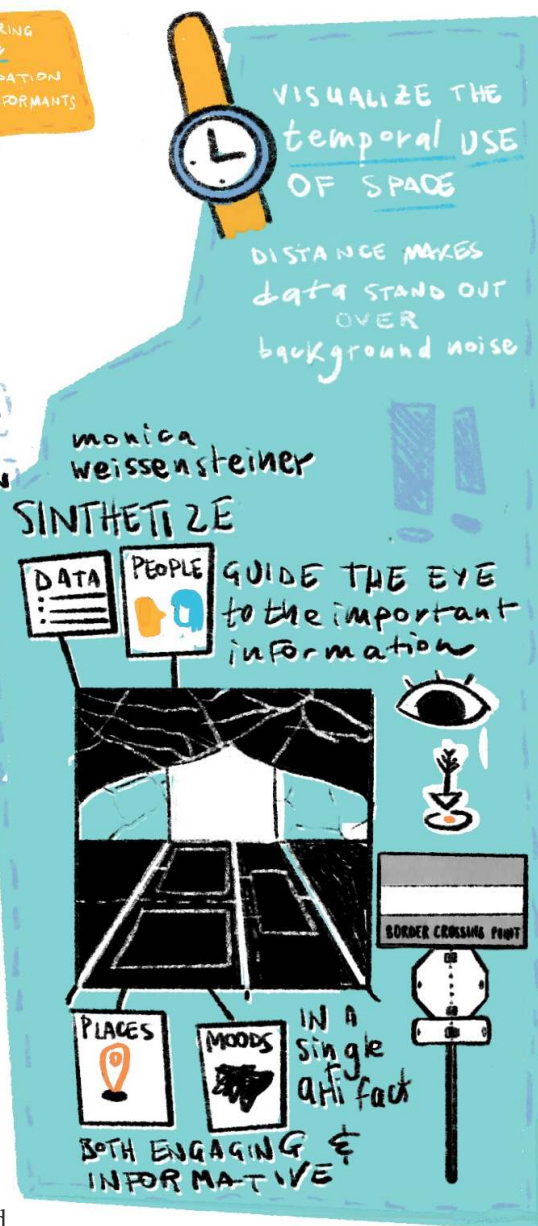 VISUALIZE THE
temporal USE
OF SPACE
DISTANCE MAKES
data STAND OUT
OVER
background noise
monica
weissensteiner
SINTHETIZE
DATA
PEOPLE
GUIDE THE EYE
to the important
information
BORDER CROSSING POINT
PLACES
MOODS
IN A
single
artifact
BOTH ENGAGING &
INFORMATIVE